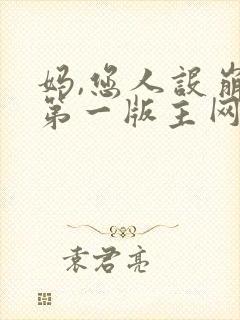 妈,您人设崩
第一版主网
袁君亮